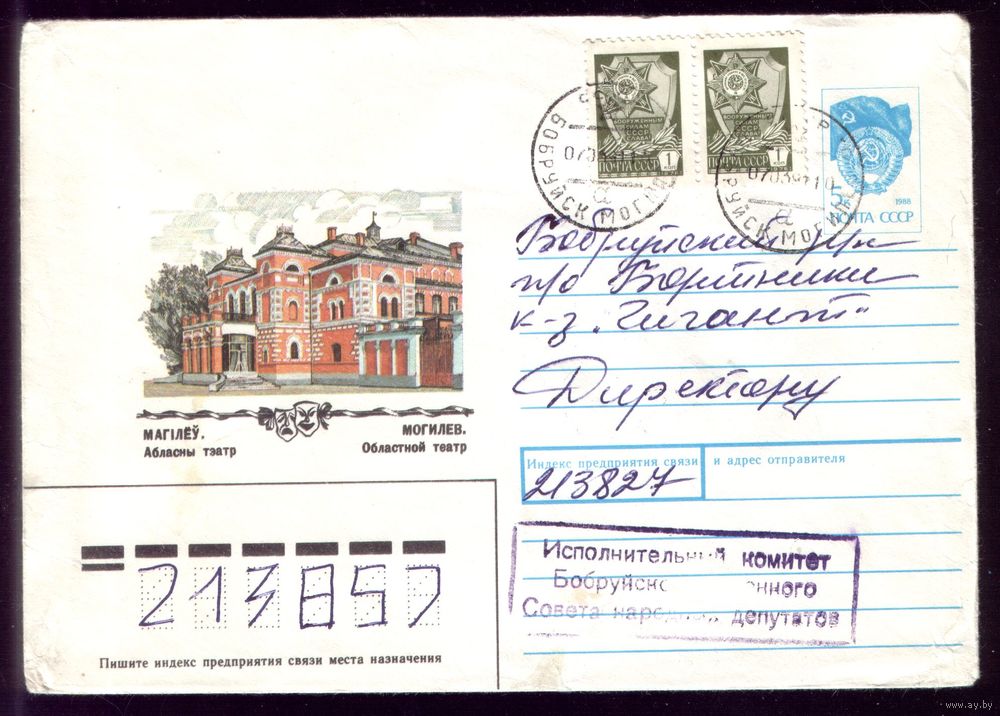 ВООРУЖЕННЫМ
СИЛАМ
СССР
СЛАВА!
ПОЧТА СССР 1 КОП
ВООРУЖЕННЫМ
СИЛАМ
СССР
СЛАВА!
ПОЧТА СССР 1 КОП
БОБРУЙСК МОГИЛ
5к 1988
ПОЧТА СССР
Бобруйский р-н
п/о Бортники
к-з „Гигант"
Директору
МАГІЛЁЎ.
Абласны тэатр
МОГИЛЕВ.
Областной театр
Индекс предприятия связи и адрес отправителя
213827
Исполнительный комитет
Бобруйско нного
Совета народных депутатов
213857
Пишите индекс предприятия связи места назначения
www.ay.by